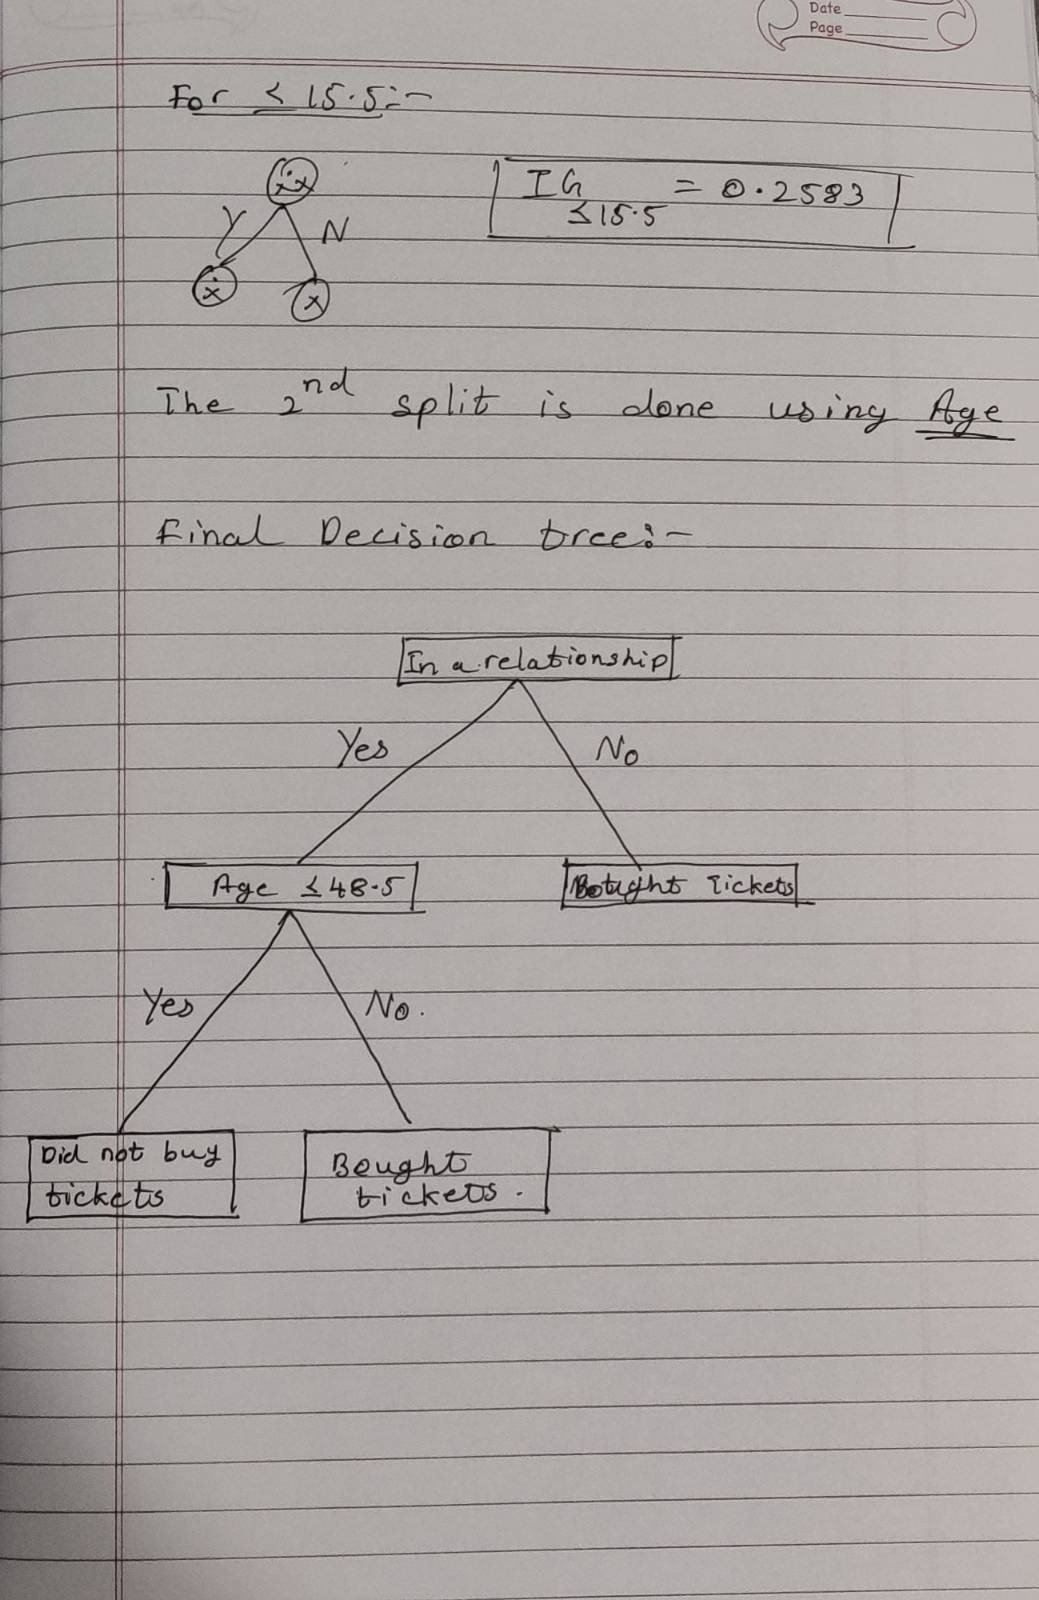 Date
Page
For ≤ 15.5:-
Y N
x x
IG ≤15.5 = 0.2583
The 2nd split is done using Age
Final Decision tree:-
In a relationship
Yes No
Age ≤ 48.5 Bought Tickets
Yes No.
Did not buy Bought
tickets tickets.